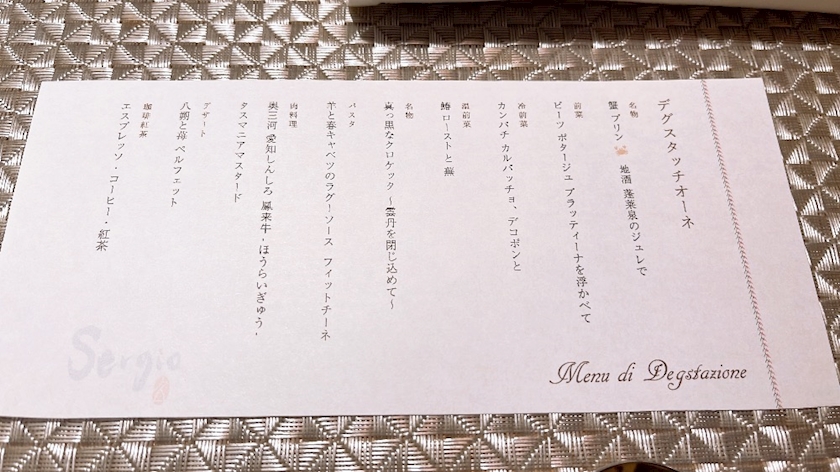 デグスタッチオーネ
名物
蟹プリン 地酒 蓬莱泉のジュレで
前菜
ビーツ ポタージュ ブラッティーナを浮かべて
冷前菜
カンパチ カルパッチョ、デコポンと
温前菜
鰆 ローストと蕪
名物
真っ黒なクロケック ~雲丹を閉じ込めて~
パスタ
羊と春キャベツのラグーソース フィットチーネ
肉料理
奥三河 愛知しんしろ 鳳来牛・ほうらいぎゅう・
タスマニアマスタード
デザート
八朔と苺 ペルフェット
珈琲紅茶
エスプレッソ・コーヒー・紅茶
Menu di Degstazione
Sergio